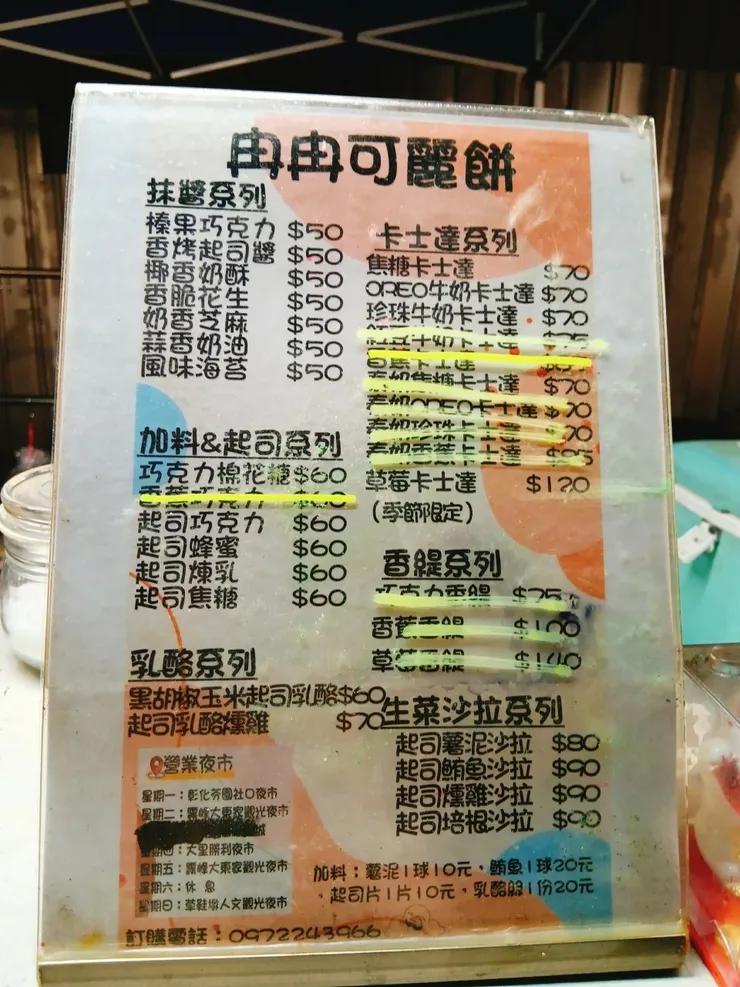 冉冉可麗餅
抹醬系列
榛果巧克力 $50
香烤起司醬 $50
椰香奶酥 $50
香脆花生 $50
奶香芝麻 $50
蒜香奶油 $50
風味海苔 $50
加料&起司系列
巧克力棉花糖 $60
香蕉巧克力 $60
起司巧克力 $60
起司蜂蜜 $60
起司煉乳 $60
起司焦糖 $60
乳酪系列
黑胡椒玉米起司乳酪 $60
起司乳酪燻雞 $70
營業夜市
星期一：彰化芬園社口夜市
星期二：霧峰大東家觀光夜市
星期四：大里勝利夜市
星期五：霧峰大東家觀光夜市
星期六：休 息
星期日：草鞋墩人文觀光夜市
訂購電話：0972243966
卡士達系列
焦糖卡士達 $70
OREO牛奶卡士達 $70
珍珠牛奶卡士達 $70
紅豆牛奶卡士達 $75
香蕉卡士達
泰奶焦糖卡士達 $70
泰奶OREO卡士達 $70
泰奶珍珠卡士達 $70
泰奶香蕉卡士達
草莓卡士達 $120
(季節限定)
香緹系列
巧克力香緹 $75
香蕉香緹 $100
草莓香緹 $140
生菜沙拉系列
起司薯泥沙拉 $80
起司鮪魚沙拉 $90
起司燻雞沙拉 $90
起司培根沙拉 $90
加料：薯泥1球10元，鮪魚1球20元
，起司片1片10元，乳酪絲1份20元